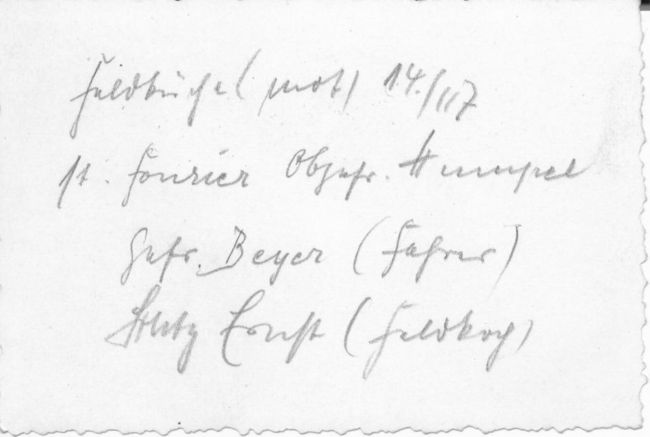 Feldküche (mot) 14./117
st. Fourier Obgefr. Humpel
Gefr. Beyer (Fahrer)
Ernst (Feldkoch)